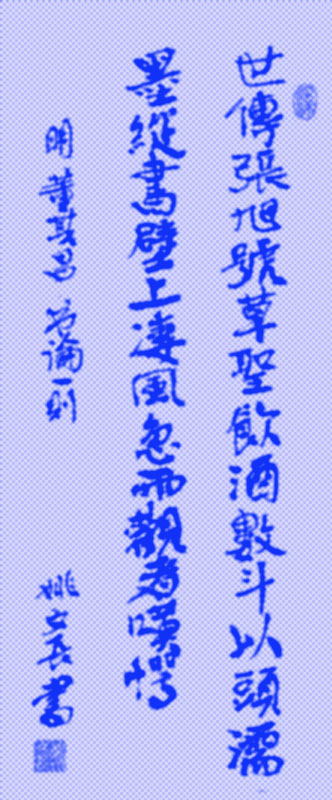 世傳張旭號草聖飲酒數斗以頭濡
墨縱書壁上淒風急雨觀者嘆愕
明董其昌書論一則
書